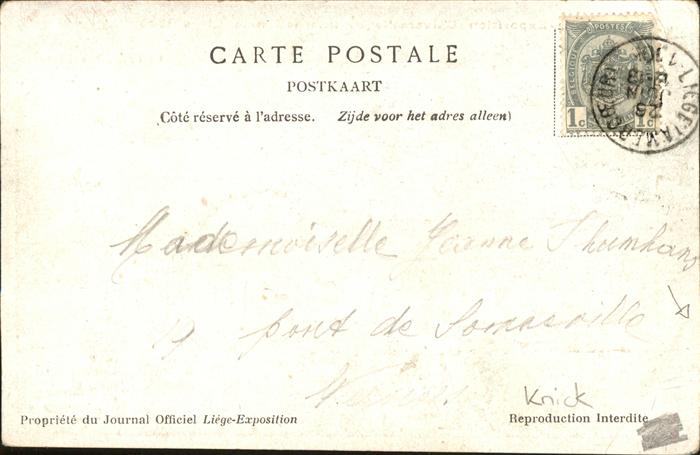 CARTE POSTALE
POSTKAART
(Côté réservé à l'adresse. Zijde voor het adres alleen)
POSTES
1c 1c
Mademoiselle Jeanne
19 pont de Sommeville
Knick
Propriété du Journal Officiel Liége-Exposition
Reproduction Interdite